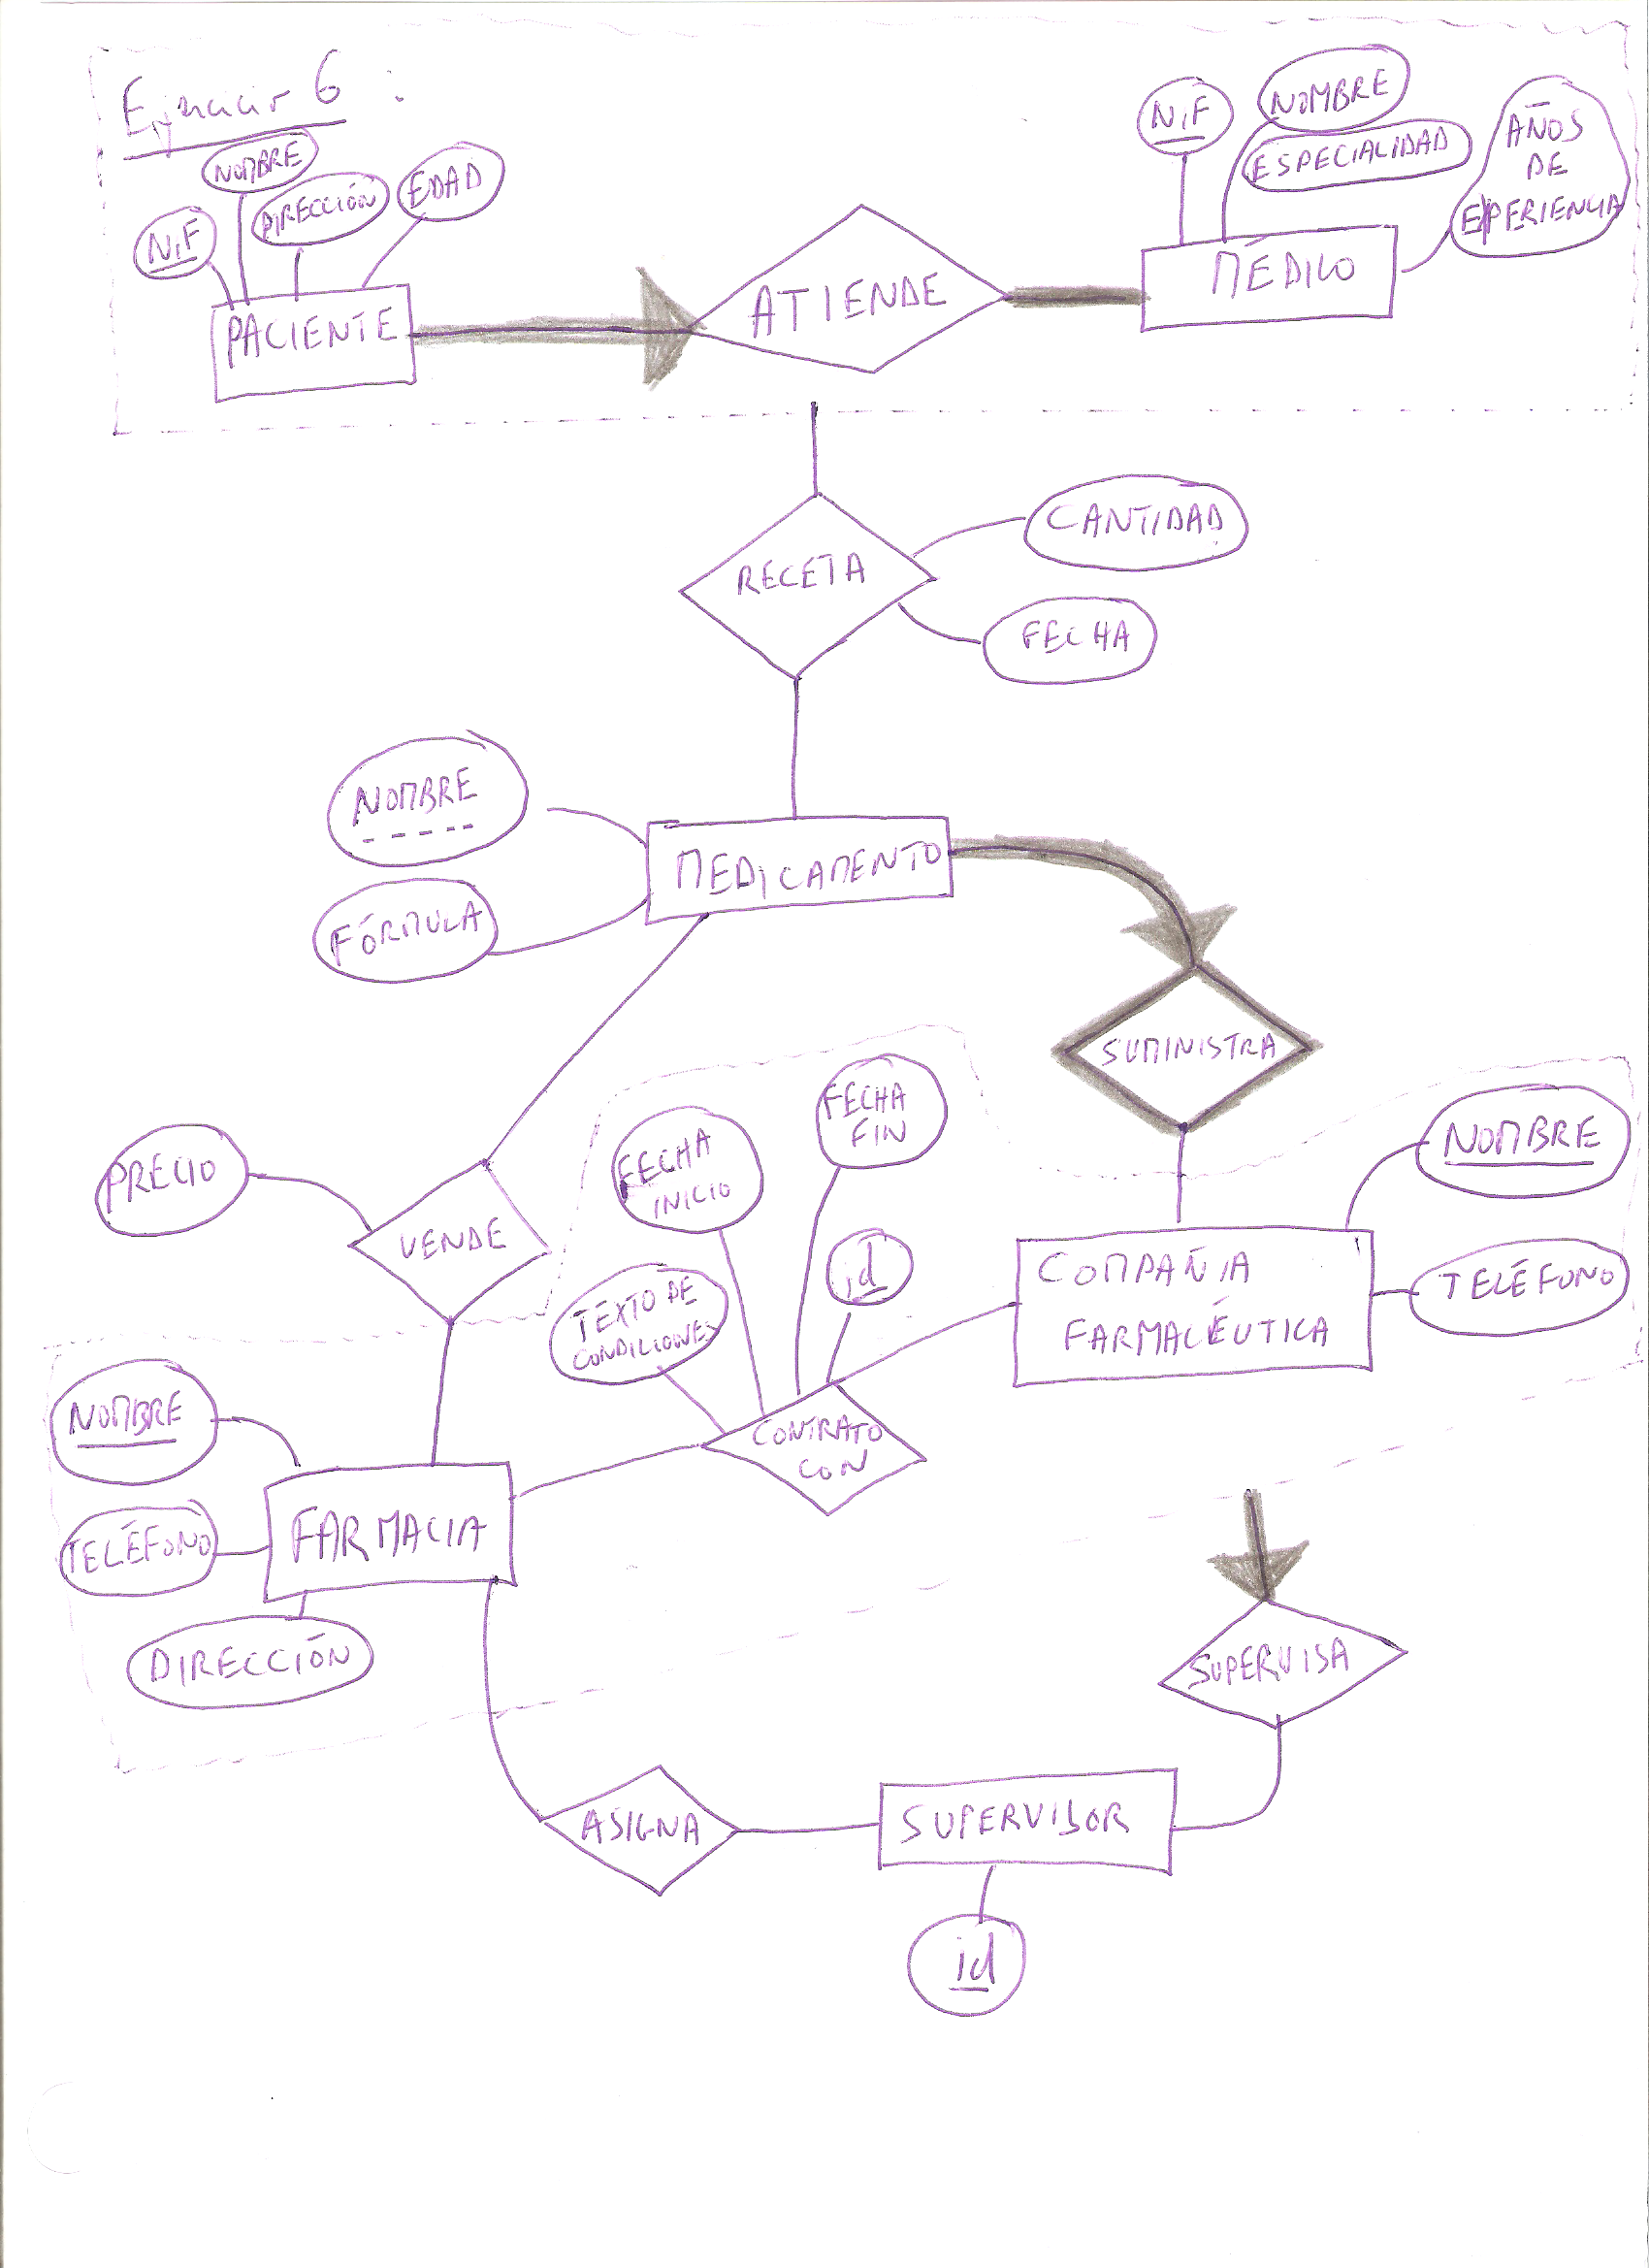 Ejercicio 6
NOMBRE
NIF
DIRECCIÓN
EDAD
PACIENTE
ATIENDE
NIF
NOMBRE
ESPECIALIDAD
AÑOS
DE
EXPERIENCIA
MÉDICO
RECETA
CANTIDAD
FECHA
NOMBRE
FÓRMULA
MEDICAMENTO
SUMINISTRA
PRECIO
VENDE
FECHA
INICIO
FECHA
FIN
id
TEXTO DE
CONDICIONES
NOMBRE
TELÉFONO
COMPAÑIA
FARMACÉUTICA
CONTRATO
CON
NOMBRE
TELÉFONO
DIRECCIÓN
FARMACIA
SUPERVISA
ASIGNA
SUPERVISOR
id